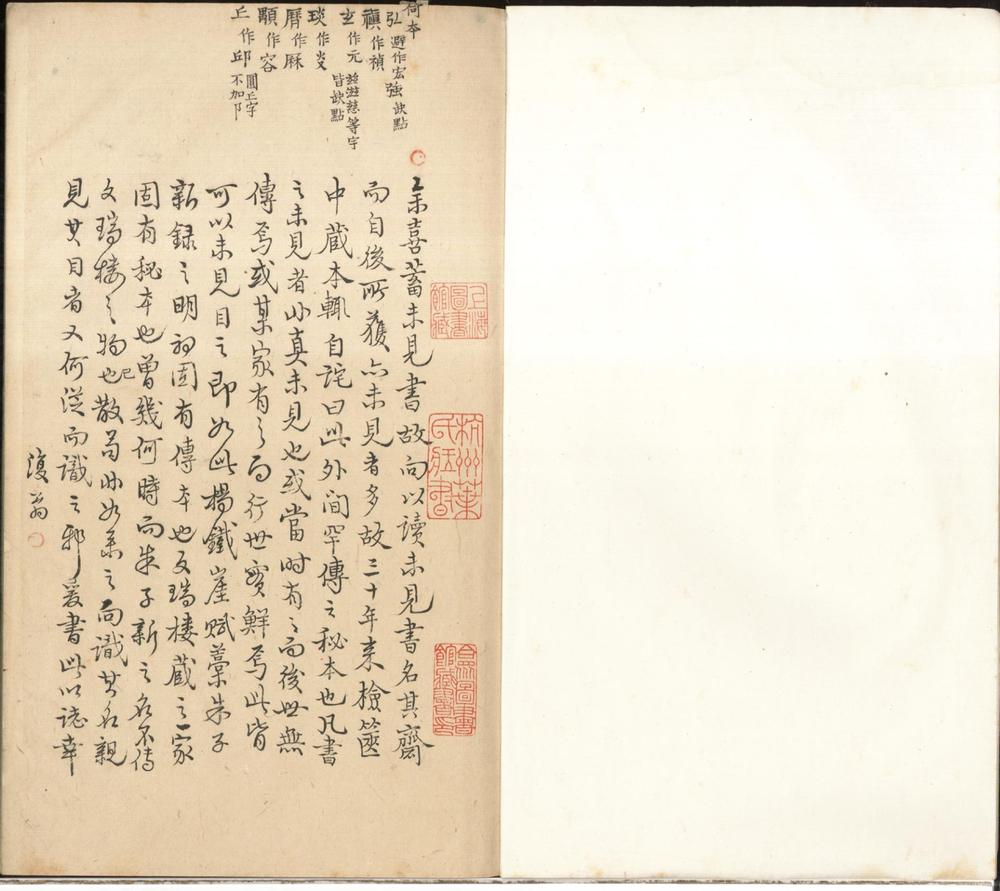 何本
弘避作宏強缺點
禛作禎
玄作元兹滋慈等字皆缺點
琰作炎
曆作厤
顒作容
丘作邱圜丘字不加阝
余喜蓄未見書故向以讀未見書名其齋
而自後所獲亦未見者多故三十年来檢篋
中藏本輒自詫曰此外間罕傳之秘本也凡書
之未見者非真未見也或當時有之而後世無
傳焉或某家有之而行世實鮮焉此皆
可以未見目之即如此楊鐵崖賦藁朱子
新録之明初固有傳本也文瑞楼藏之一家
固有秘本也曾幾何時而朱子新之名不傳
文瑞楼之物也已散苟非如余之向識其名親
見其目者又何從而識之邪爰書此以誌幸
復翁
上海圖書館藏
杭州葉氏臧書
圖書館臧書